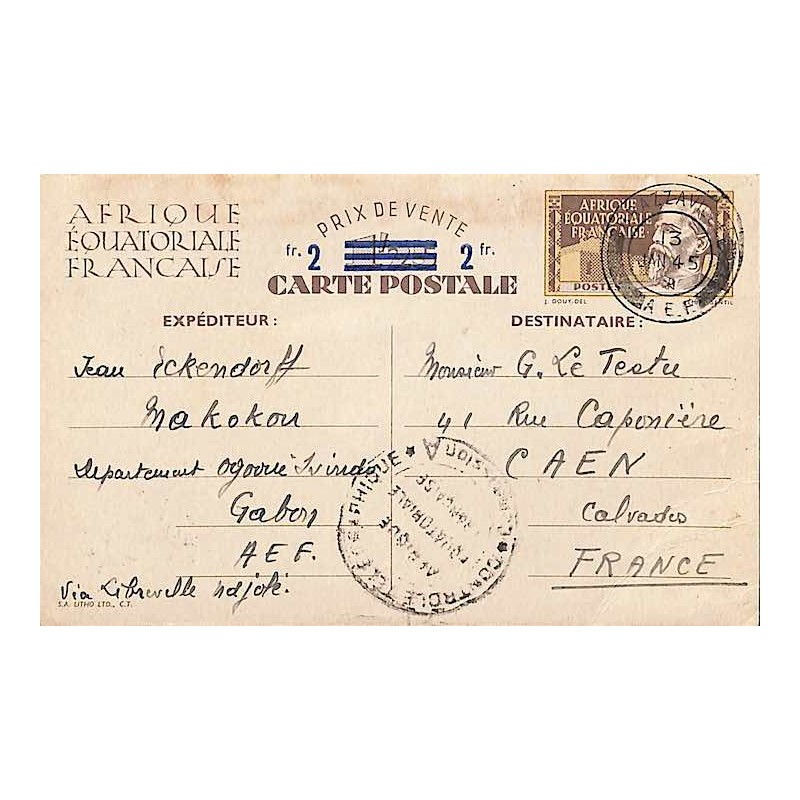 AFRIQUE
ÉQUATORIALE
FRANCAISE
PRIX DE VENTE
fr. 2 2 fr.
CARTE POSTALE
AFRIQUE
ÉQUATORIALE
FRANÇAISE
POSTES
J. DOUY-DEL
13
45
A.E.F.
EXPÉDITEUR :
Jean Eckendorff
Makokou
Departement Ogooué Ivindo
Gabon
AEF.
Via Libreville Ndjolé.
S.A. LITHO LTD., C.T.
DESTINATAIRE :
Monsieur G. Le Testu
41 Rue Caponière
CAEN
Calvados
FRANCE
CONTROLE
A
AFRIQUE
EQUATORIALE
FRANCAISE